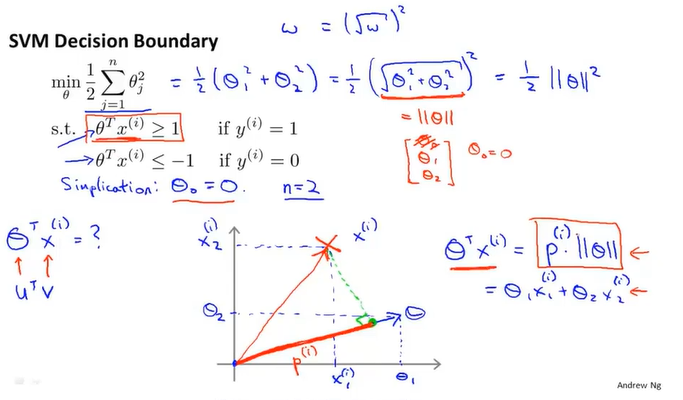 ω = (√ω)²
SVM Decision Boundary
min_θ 1/2 Σ_{j=1}^{n} θ_j² = 1/2 (θ₁² + θ₂²) = 1/2 (√(θ₁² + θ₂²))² = 1/2 ||θ||²
= ||θ||
s.t. θᵀx⁽ⁱ⁾ ≥ 1 if y⁽ⁱ⁾ = 1
θᵀx⁽ⁱ⁾ ≤ −1 if y⁽ⁱ⁾ = 0
[θ₁ θ₂] θ₀ = 0
Simplication: θ₀ = 0. n=2
θᵀx⁽ⁱ⁾ = ?
uᵀv
x₂⁽ⁱ⁾
x⁽ⁱ⁾
θ₂
θ
p⁽ⁱ⁾
x₁⁽ⁱ⁾
θ₁
θᵀx⁽ⁱ⁾ = p⁽ⁱ⁾ · ||θ|| ←
= θ₁x₁⁽ⁱ⁾ + θ₂x₂⁽ⁱ⁾ ←
Andrew Ng